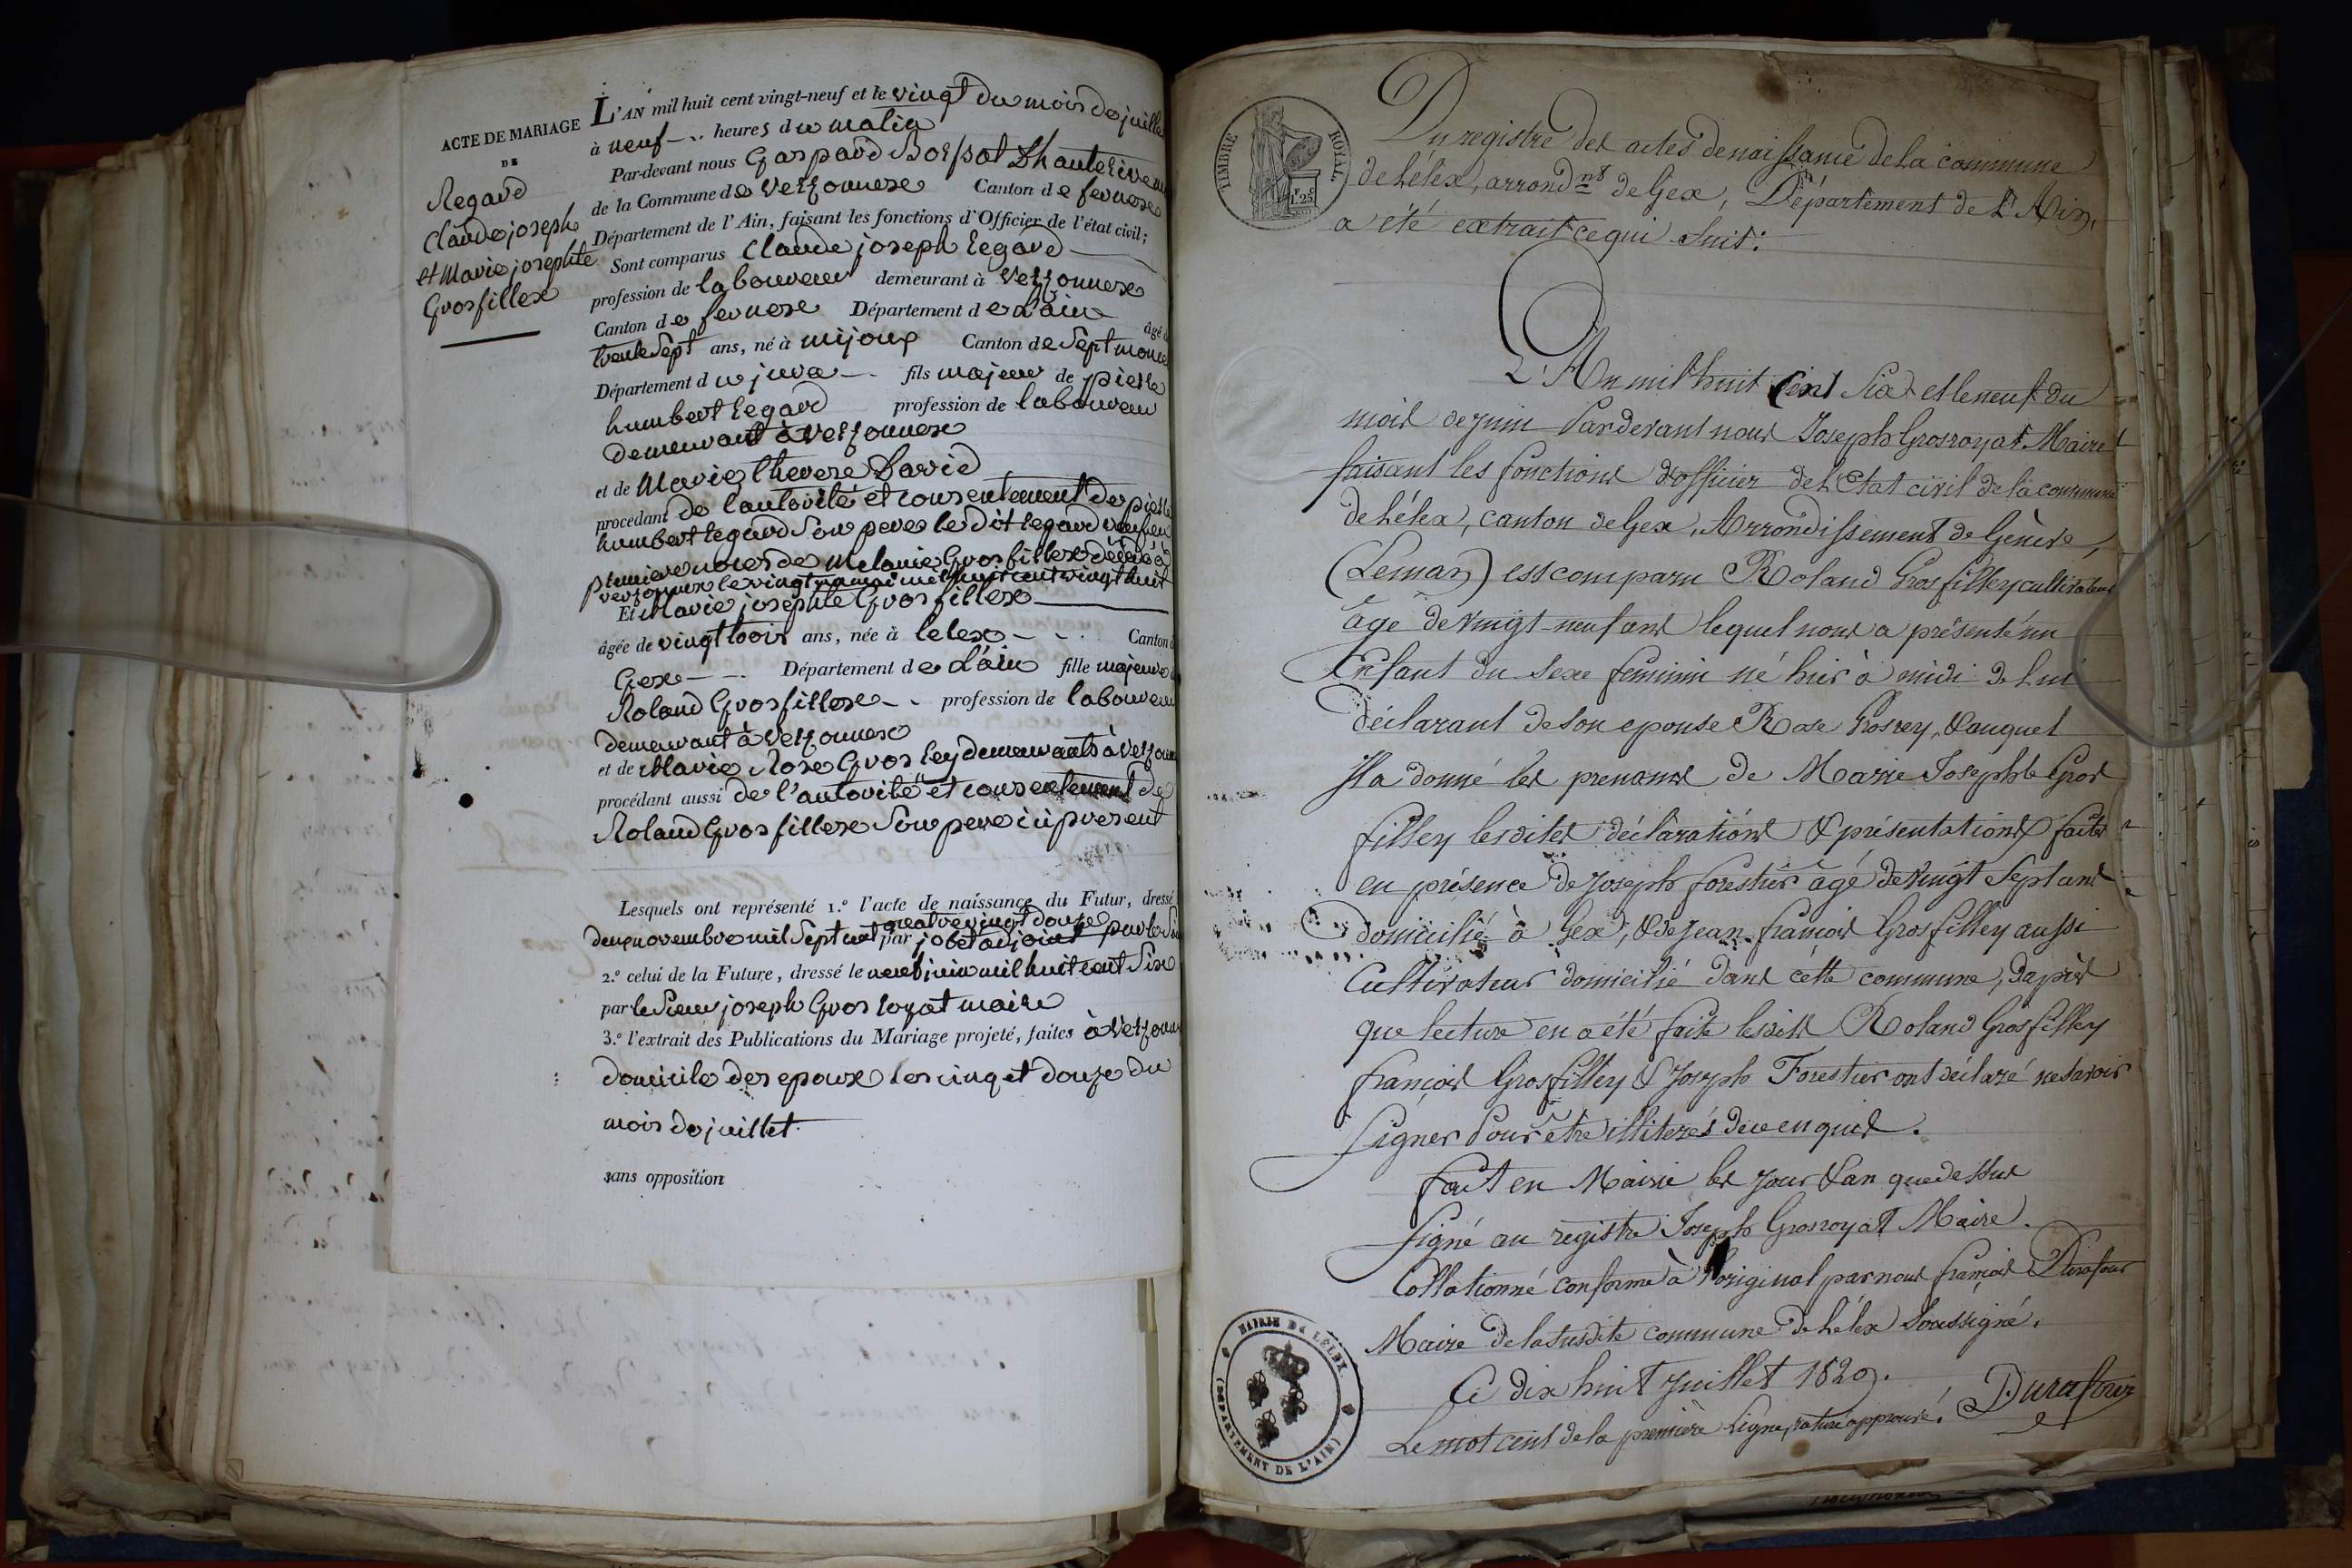 ACTE DE MARIAGE
DE
Regard
Claude joseph
et Marie josephte
Grosfillex
L'AN mil huit cent vingt-neuf et le vingt du mois de juille
à neuf heures du matin
Par-devant nous Gaspard
de la Commune de Versonnex Canton de fernex
Département de l'Ain, faisant les fonctions d'Officier de l'état civil;
Sont comparus Claude joseph regard
profession de laboureur demeurant à Versonnex
Canton de fernex Département de L'ain âgé d
trente Sept ans, né à mijoux Canton de Septmonce
Département du jura fils majeur de pierre
humbert regard profession de laboureur
demeurant à Versonnex
et de Marie Therese David
procédant de l'autorité et consentement de pierre
humbert regard Son pere le dit regard veuf en
premiere noces de Melanie Grosfillex décédé à
versonnex le vingt mil huit cent vingt huit
Et Marie josephte Grosfillex
âgée de vingt trois ans, née à lelex Canton d
Gex Département de L'ain fille majeure d
Roland Grosfillex profession de laboureur
demeurant à Versonnex
et de Marie Rose Gros ley demeurants à Versonn
procédant aussi de l'autorité et consentement de
Roland Grosfillex Son pere ici present
Lesquels ont représenté 1.º l'acte de naissance du Futur, dressé
quatre vingt douze
deux novembre mil Sept cent par jobet adjoint par le
2.º celui de la Future, dressé le neuf juin mil huit cent Six
par le Sieur joseph Gros royat maire
3.º l'extrait des Publications du Mariage projeté, faites à Versonn
domicile des epoux les cinq et douze du
mois de juillet
sans opposition
TIMBRE ROYAL
1.25
Du registre des actes de naissance de la commune
de Lélex, arrond.nt de Gex, Département de L'Ain,
a été extrait ce qui Suit:
L'An mil huit Cent Six et le neuf du
mois de juin Pardevant nous Joseph Grosroyat Maire
faisant les fonctions d'officier de l'Etat civil de la commune
de Lélex, canton de Gex, Arrondissement de Genève,
(Leman) est comparu Roland Grosfilley cultivateur
âgé de vingt-neuf ans lequel nous a présenté un
Enfant du Sexe féminin né hier à midi de lui
déclarant de son epouse Rose Grosrey, & auquel
il a donné les prenoms de Marie Josephte Gros
filley lesdites déclarations & présentations faites
en présence de Joseph forestier âgé de vingt Sept ans
domicilié à Gex, & de Jean françois Grosfilley aussi
Cultivateur domicilié dans cette commune, d'après
que lecture en a été faite lesdits Roland Grosfilley
françois Grosfilley & Joseph Forestier ont déclaré ne savoir
Signer Pour être illiterés de ce enquis.
fait en Mairie les Jour & an que dessus
Signé au registre Joseph Grosroyat Maire.
Collationné conforme à l'original par nous françois Durafour
Maire de la susdite commune de Lélex Soussigné.
Ce dix huit Juillet 1829.
Le mot cent de la première Ligne, rature approuvé. Durafour
MAIRIE DE LELEX
(DÉPARTEMENT DE L'AIN)